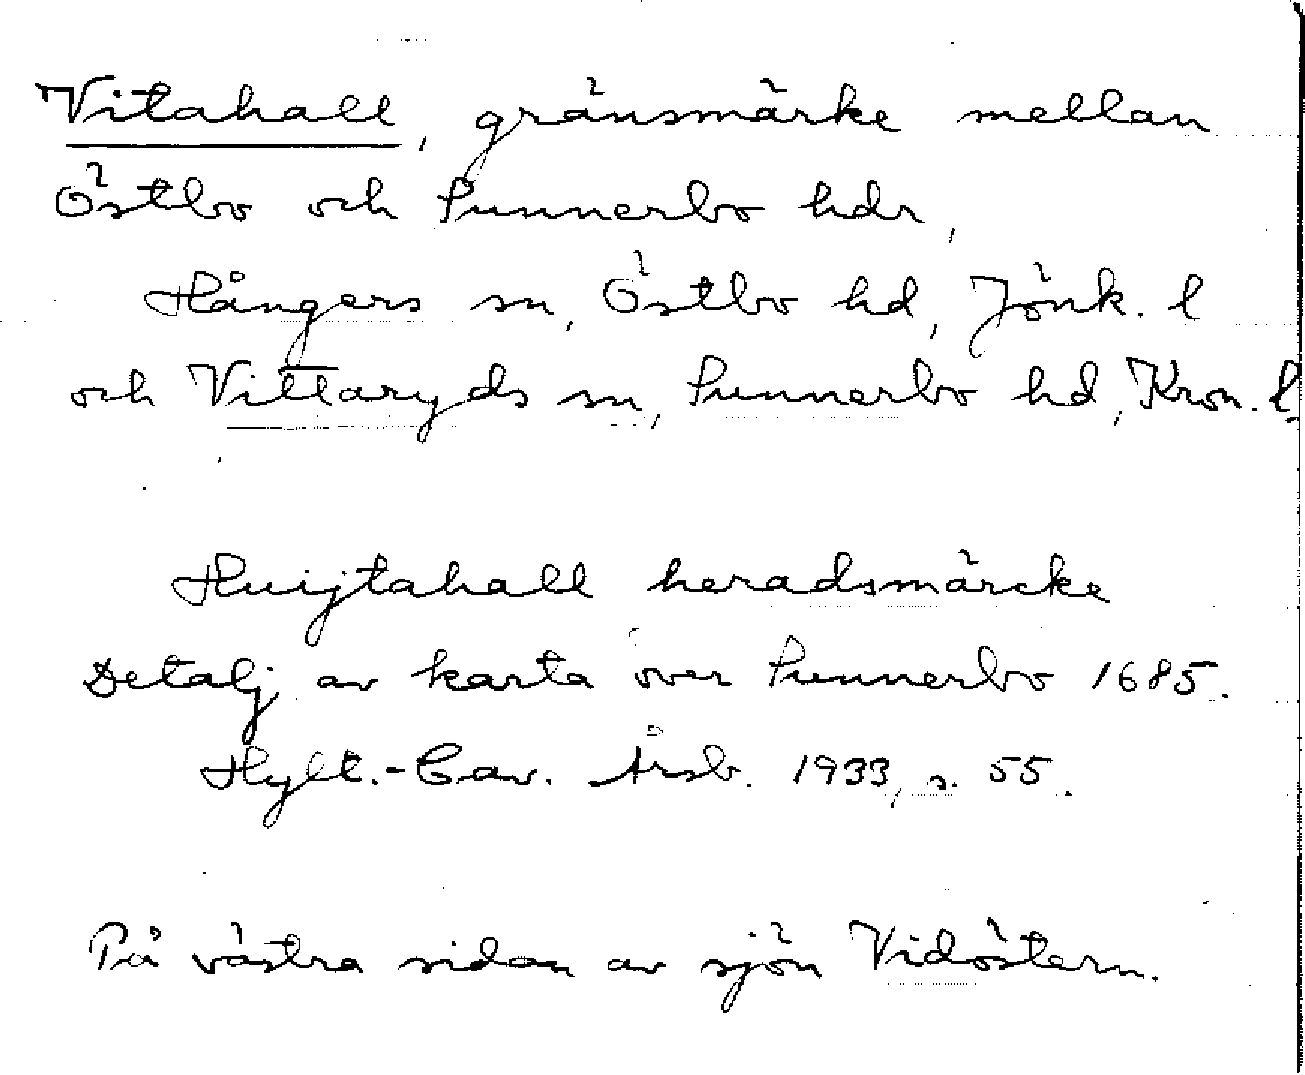 Vitahall, gränsmärke mellan
Östbo och Sunnerbo hdr,
Hångers sn, Östbo hd, Jönk. l
och Vittaryds sn, Sunnerbo hd, Kron. l
Huijtahall heradsmärcke
Detalj av karta över Sunnerbo 1685.
Hylt.-Cav. Årsb. 1933, s. 55.
På västra sidan av sjön Vidöstern.